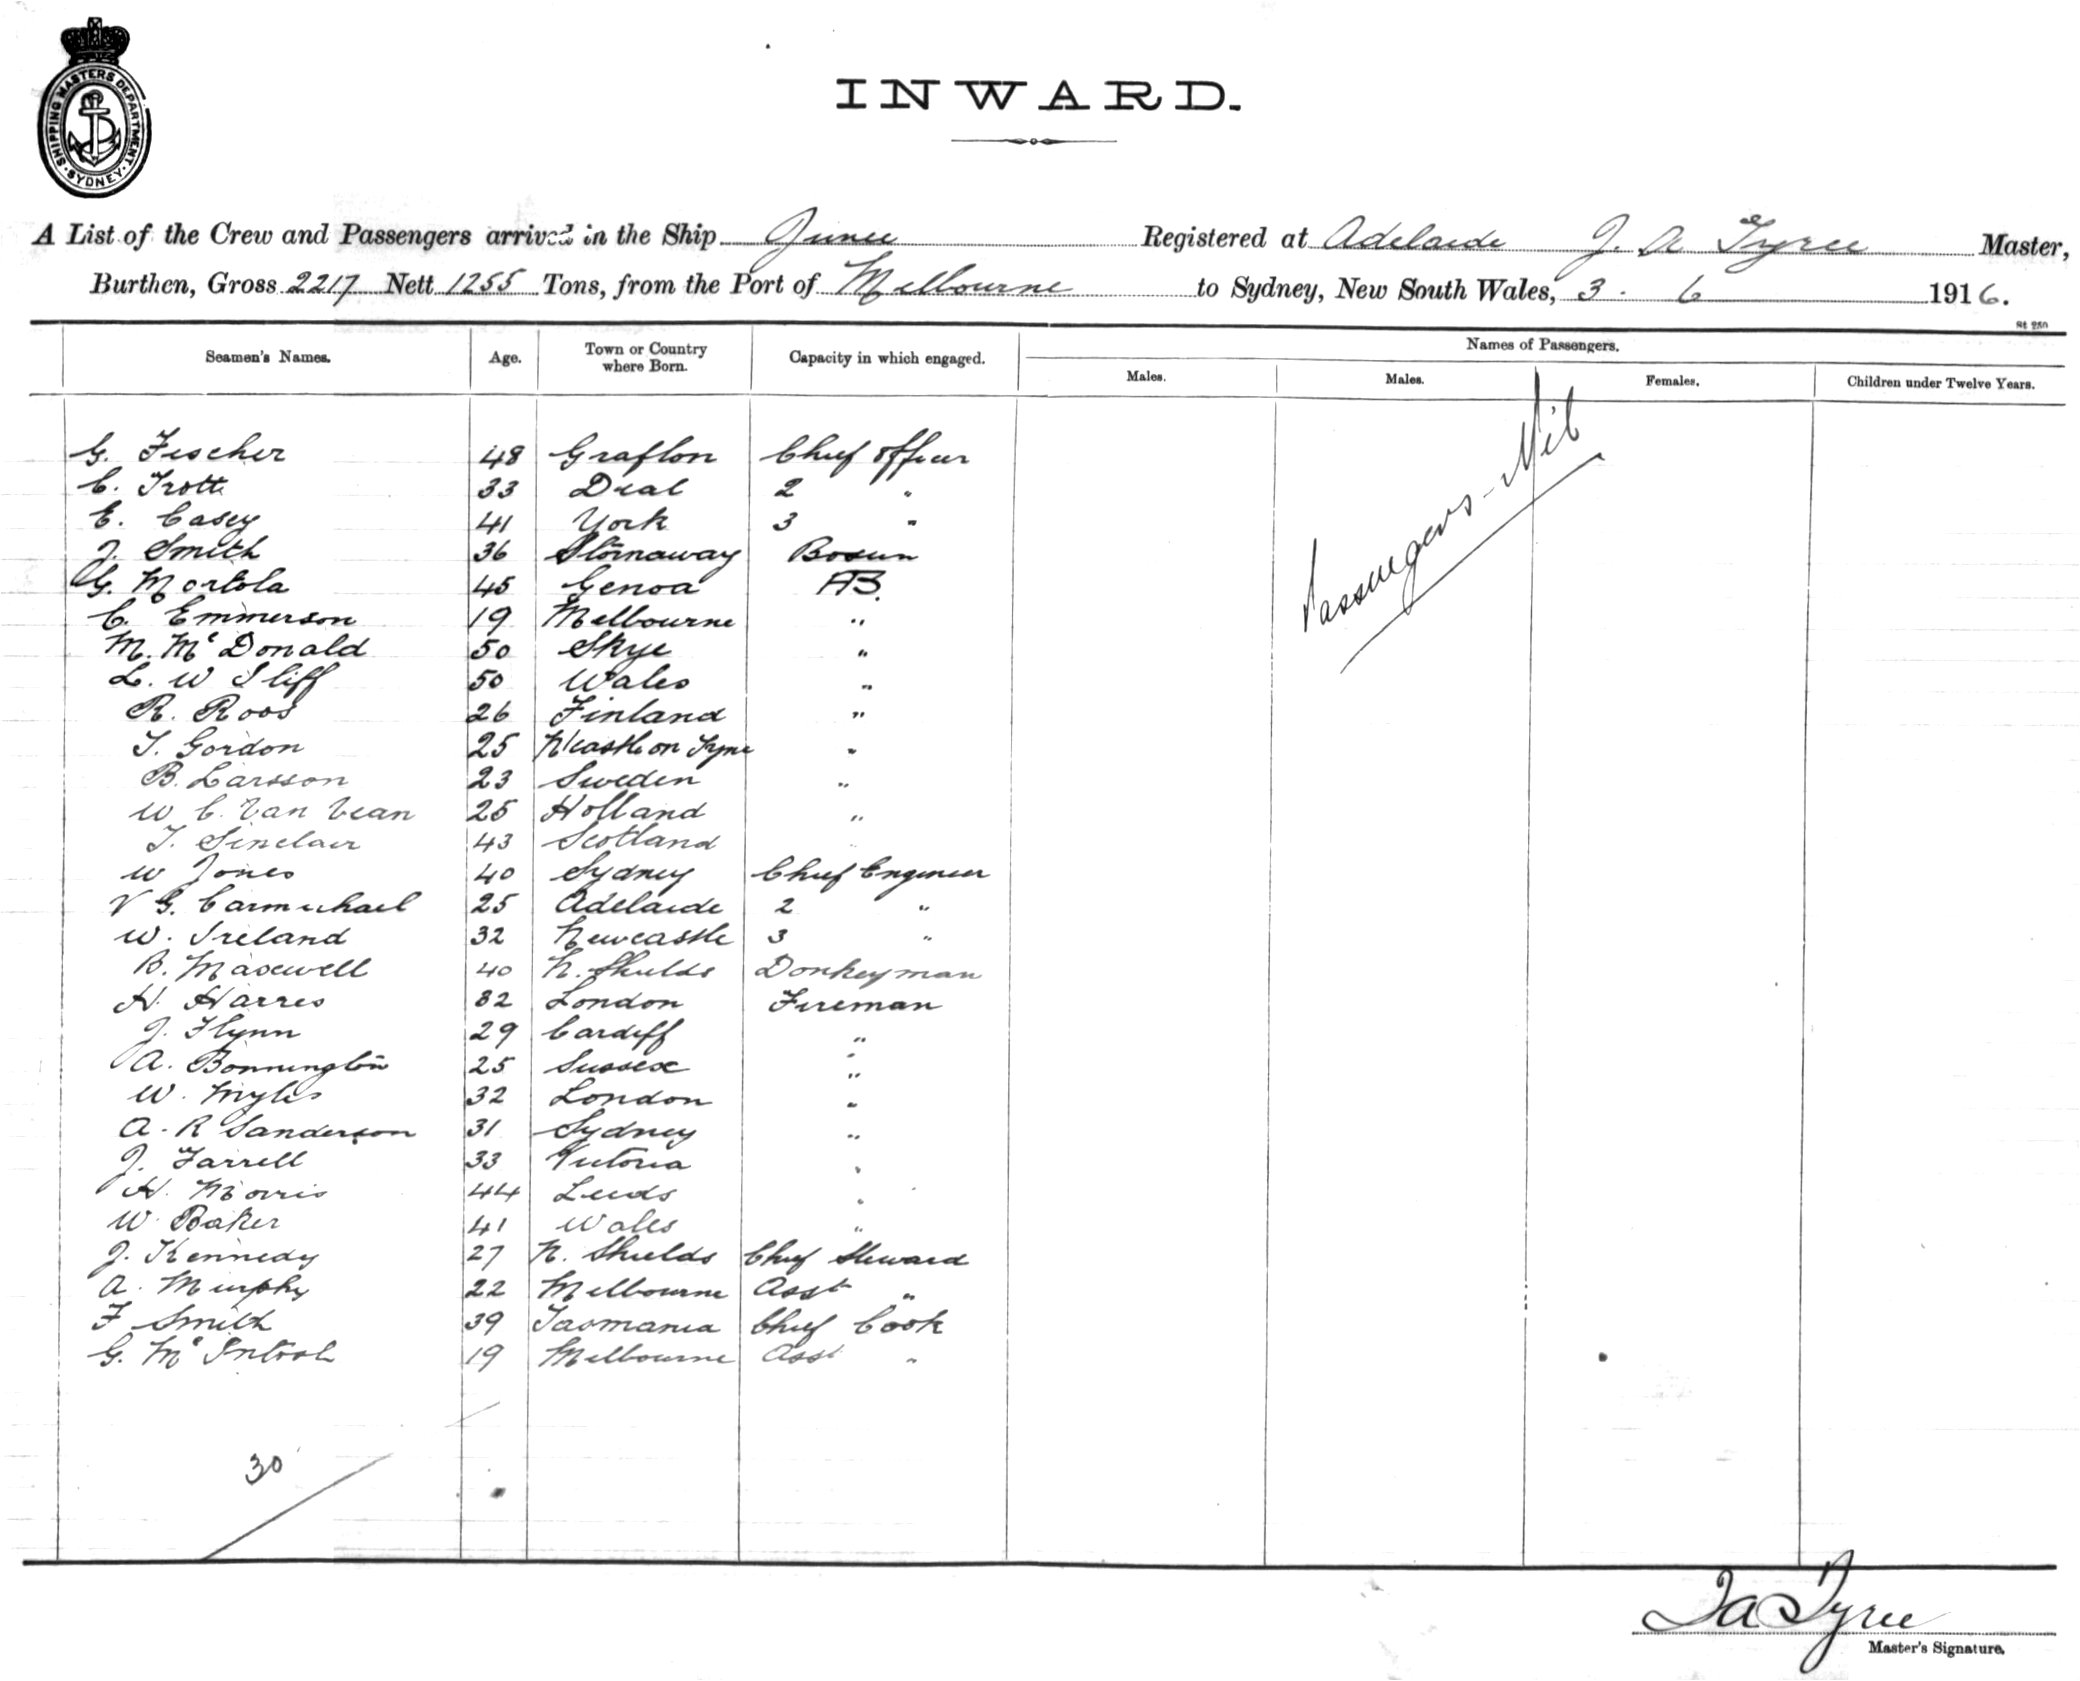 SHIPPING MASTERS DEPARTMENT
SYDNEY
INWARD.
A List of the Crew and Passengers arrived in the Ship Junee Registered at Adelaide J. A Tyree Master,
Burthen, Gross 2217 Nett 1255 Tons, from the Port of Melbourne to Sydney, New South Wales, 3. 6 1916.
St 250
Seamen's Names. Age. Town or Country where Born. Capacity in which engaged. Names of Passengers.
Males. Males. Females. Children under Twelve Years.
G. Fischer 48 Grafton Chief Officer
C. Trotte 33 Deal 2 "
E. Casey 41 York 3 "
J. Smith 36 Stornaway Bosun
G. Mortola 45 Genoa AB.
C. Emmerson 19 Melbourne "
M. McDonald 50 Skye "
L. W Iliff 50 Wales "
R. Roos 26 Finland "
T. Gordon 25 N'castle on Tyne "
B. Larsson 23 Sweden "
W C. Van Vean 25 Holland "
T. Sinclair 43 Scotland
W Jones 40 Sydney Chief Engineer
V G. Carmichael 25 Adelaide 2 "
W. Ireland 32 Newcastle 3 "
B. Maxwell 40 N. Shields Donkeyman
H. Harres 32 London Fireman
J. Flynn 29 Cardiff "
A. Bonnington 25 Sussex "
W. Myles 32 London "
A. R Sanderson 31 Sydney "
J. Farrell 33 Victoria "
H. Morris 44 Leeds "
W. Baker 41 Wales "
J. Kennedy 27 N. Shields Chief Steward
A. Murphy 22 Melbourne Asst "
F Smith 39 Tasmania Chief Cook
G. McIntosh 19 Melbourne Asst "
Passengers - Nil
30
J A Tyree
Master's Signature.